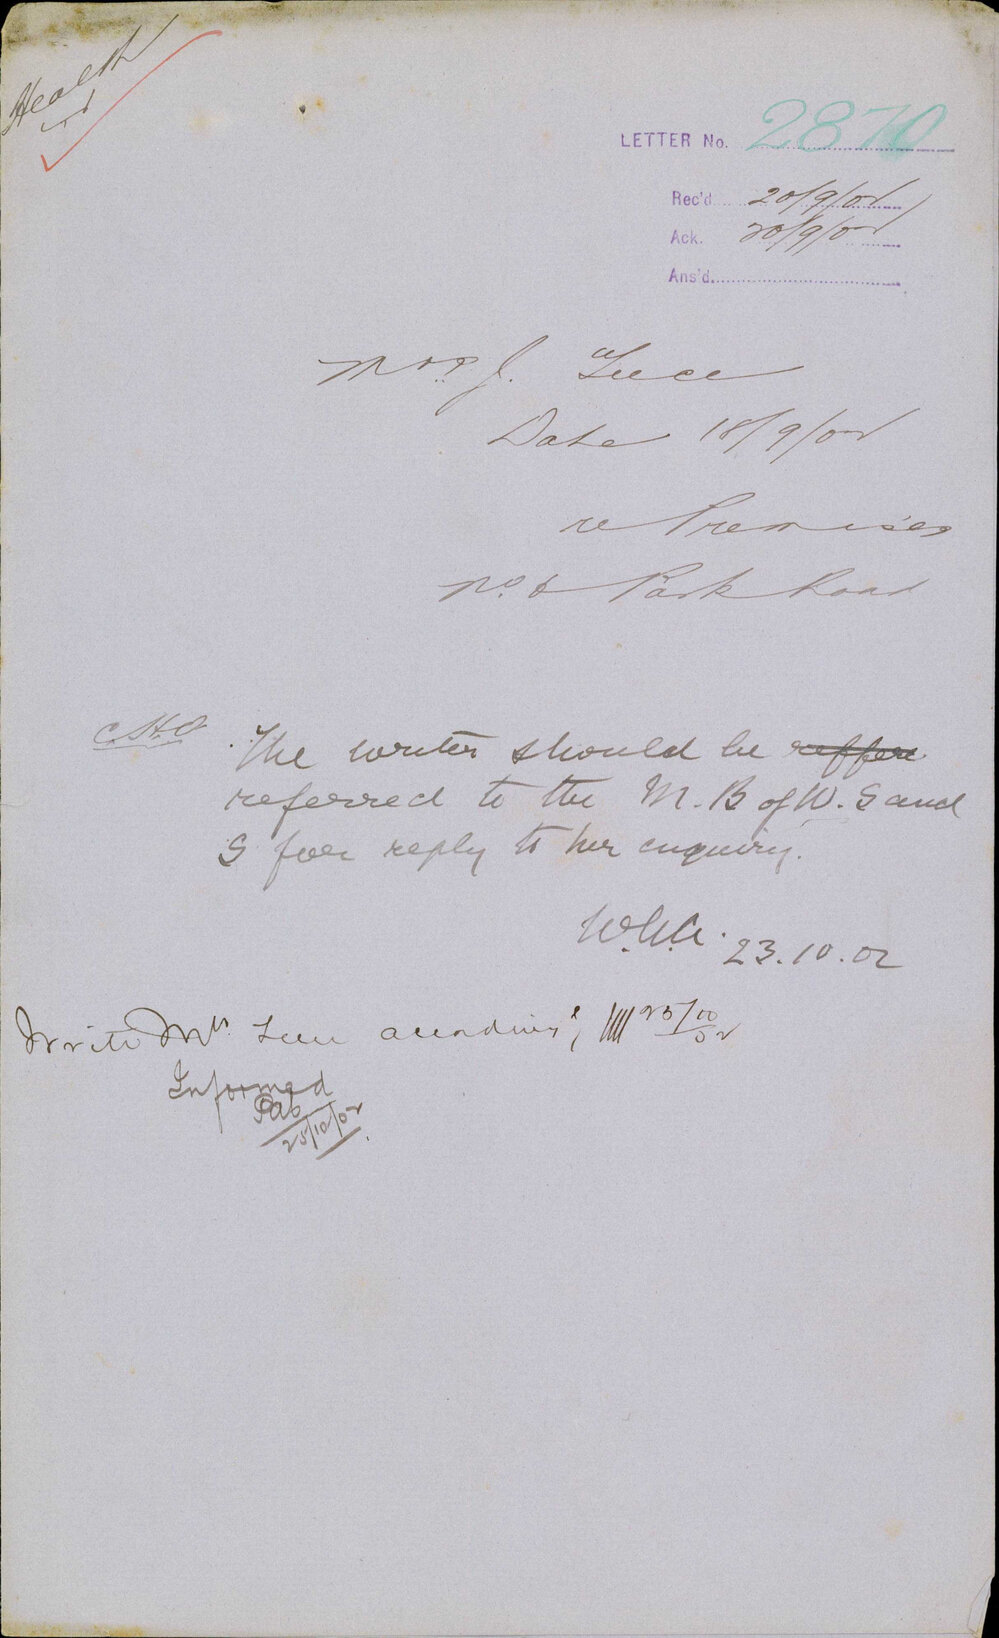 Health
LETTER No. 2870
Rec'd 20/9/02
Ack. 20/9/02
Ans'd.
Mrs. J. Luce
Date 18/9/02
re Premises
No. 6 Park Road
C.H.O The writer should be reffere
referred to the M.B of W. S and
S for reply to her enquiry.
23.10.02
Write Mrs. Luce accordingly
Informed
25/10/02